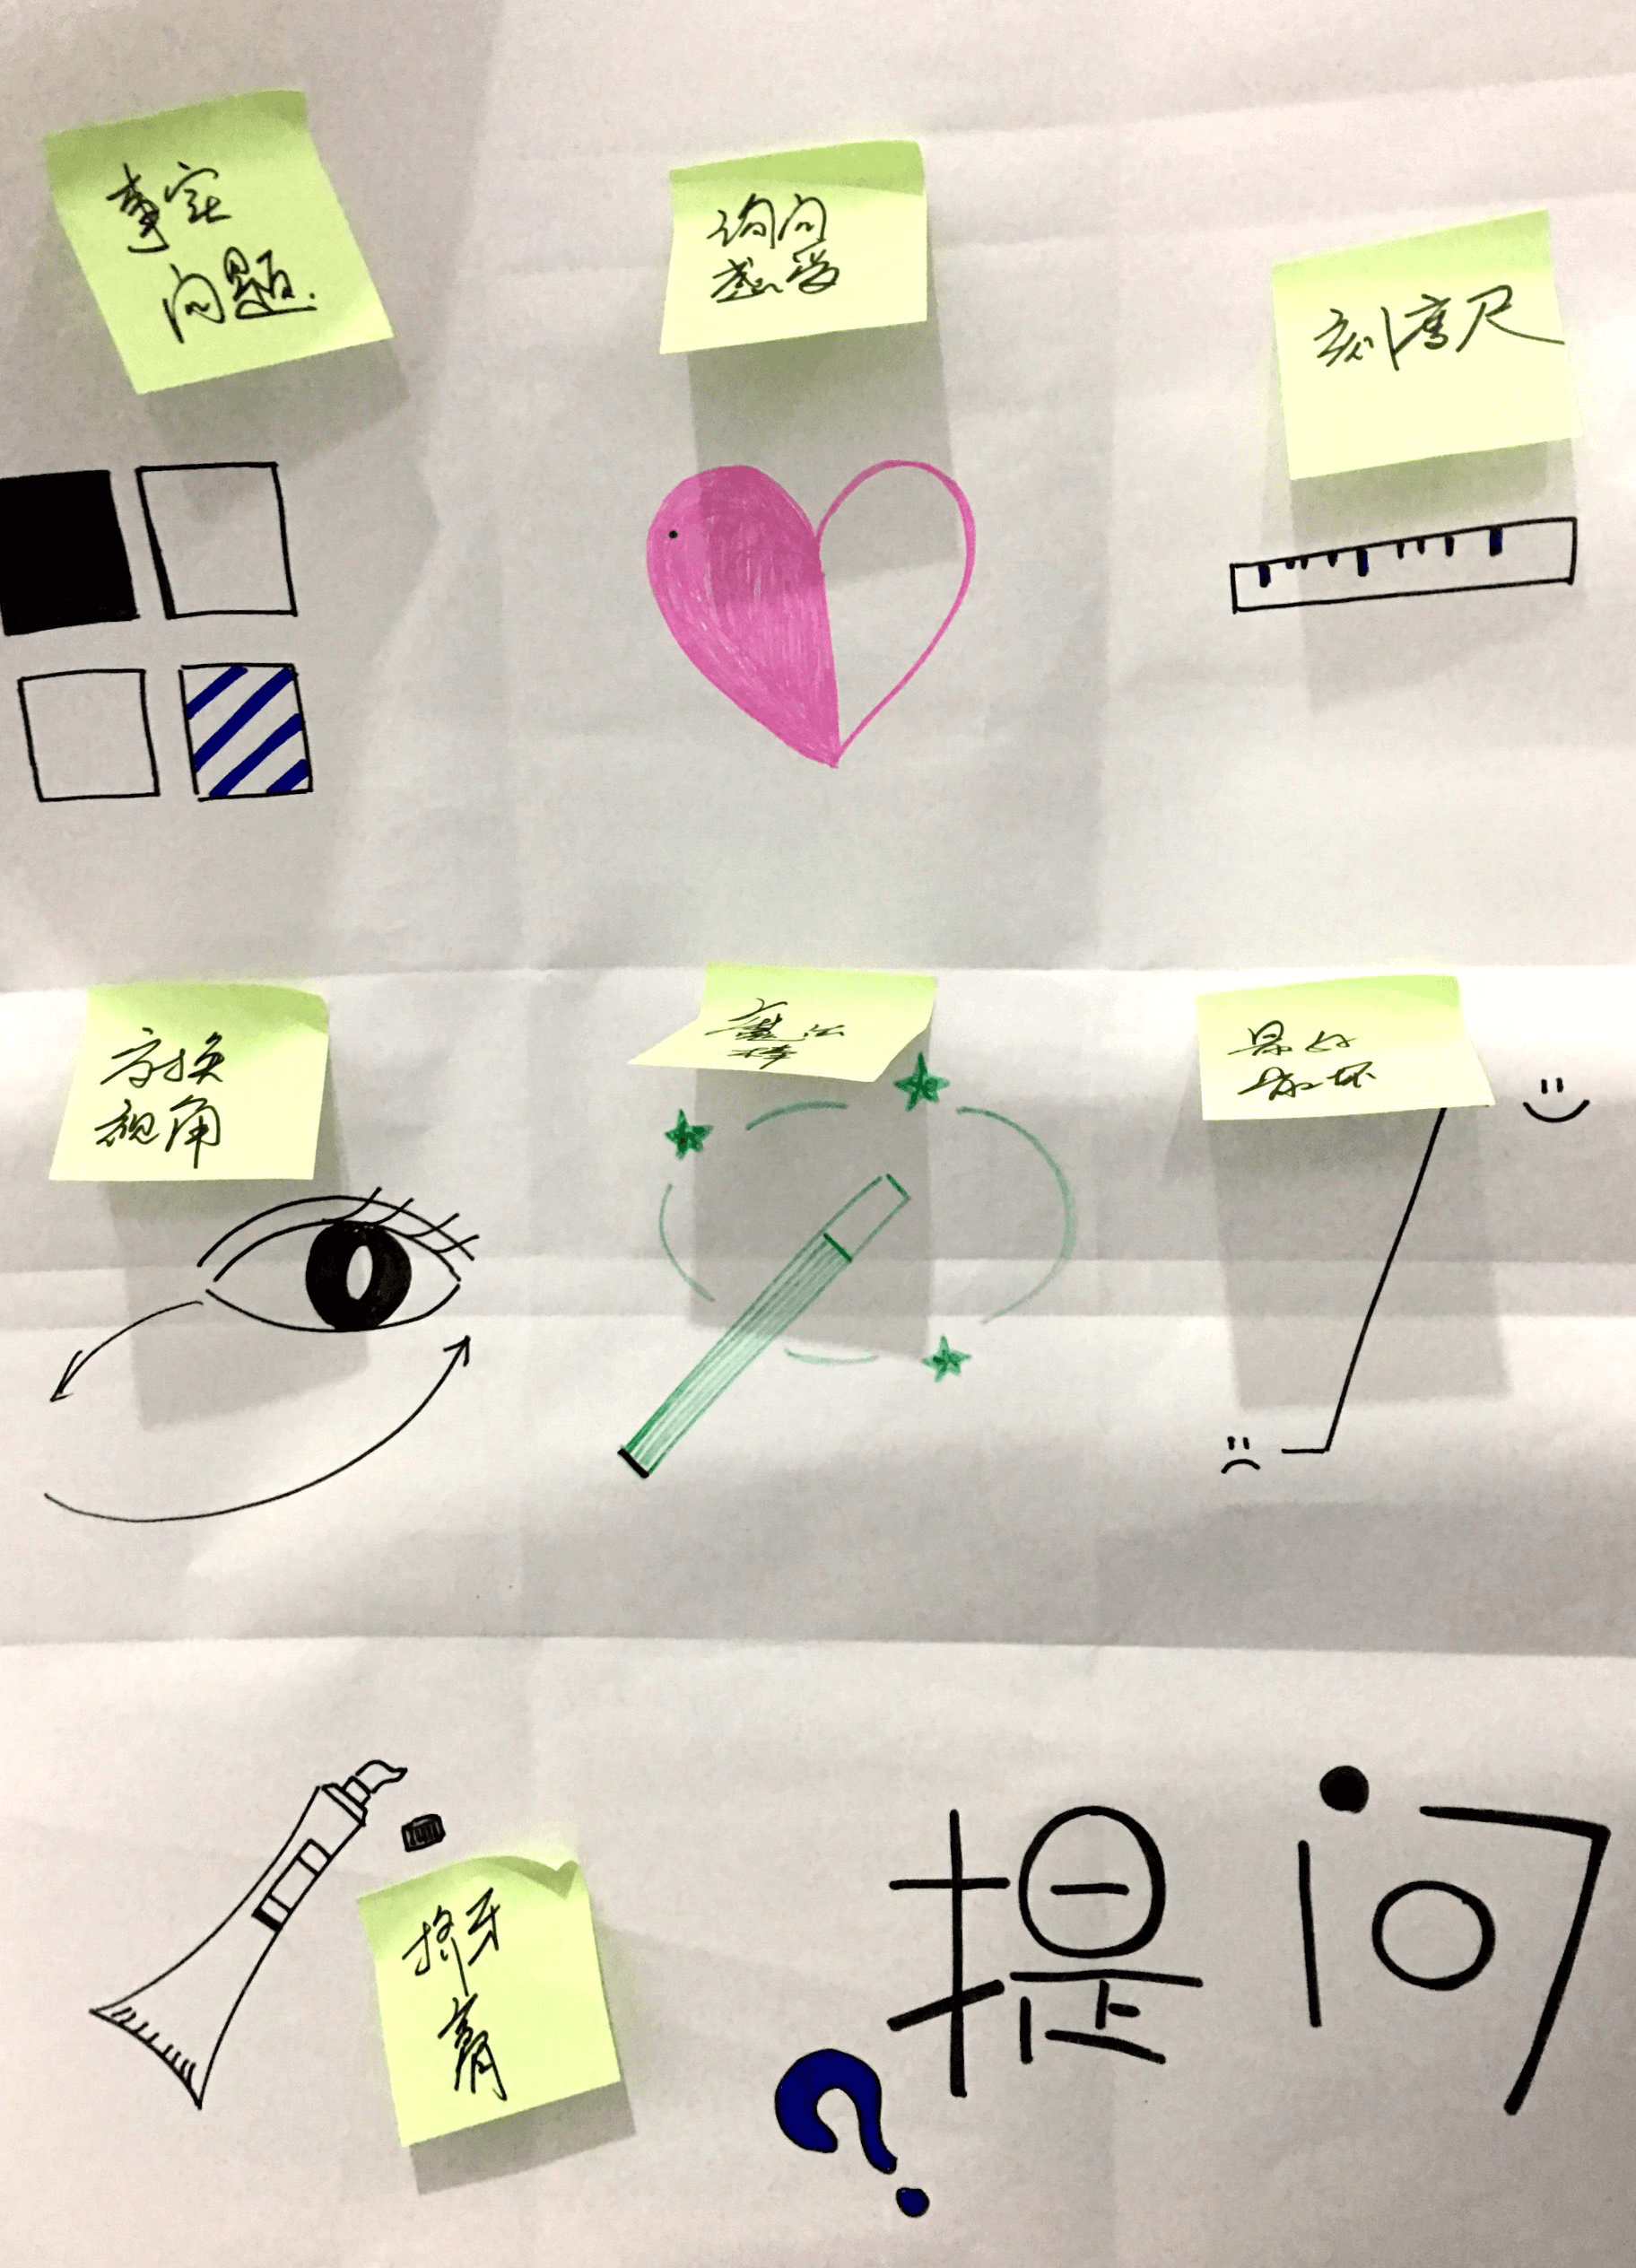 事实
问题.
询问
感受
刻度尺
方换
视角
魔法
棒
最好
最坏
挤牙
膏
提问
?